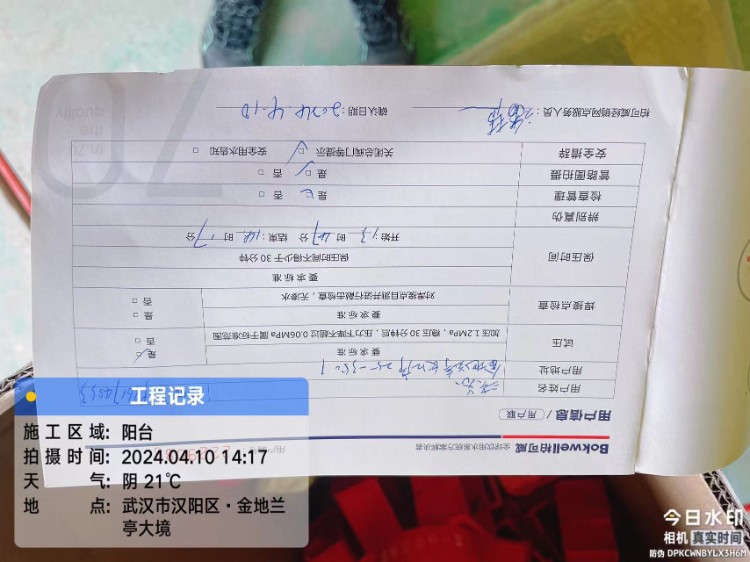 Bokwell柏可威
全球饮用水系统方案解决者
用户信息 / 用户联
用户姓名
用户地址
试压
要求标准
加压1.2MPa，稳压30分钟后，压力下降不超过0.06MPa属于标准范围
是 □
否 □
焊接点检查
要求标准
对焊接点目测并进行敲击检查，无渗水
是 □
否 □
保压时间
要求标准
保压时间不得少于30分钟
开始：13 时 47 分 结束：14 时 17 分
辨别真伪
检查管理
是 □ 否 □
管路图拍摄
是 □ 否 □
安全措辞
关闭总阀门等提示 □ 安全用水告知 □
柏可威经销网点服务人员：
确认日期：2024.4.10
工程记录
施工区域：阳台
拍摄时间：2024.04.10 14:17
天气：阴 21℃
地点：武汉市汉阳区·金地兰
亭大境
今日水印
相机 真实时间
防伪 DPKCWNBYLX3H6M